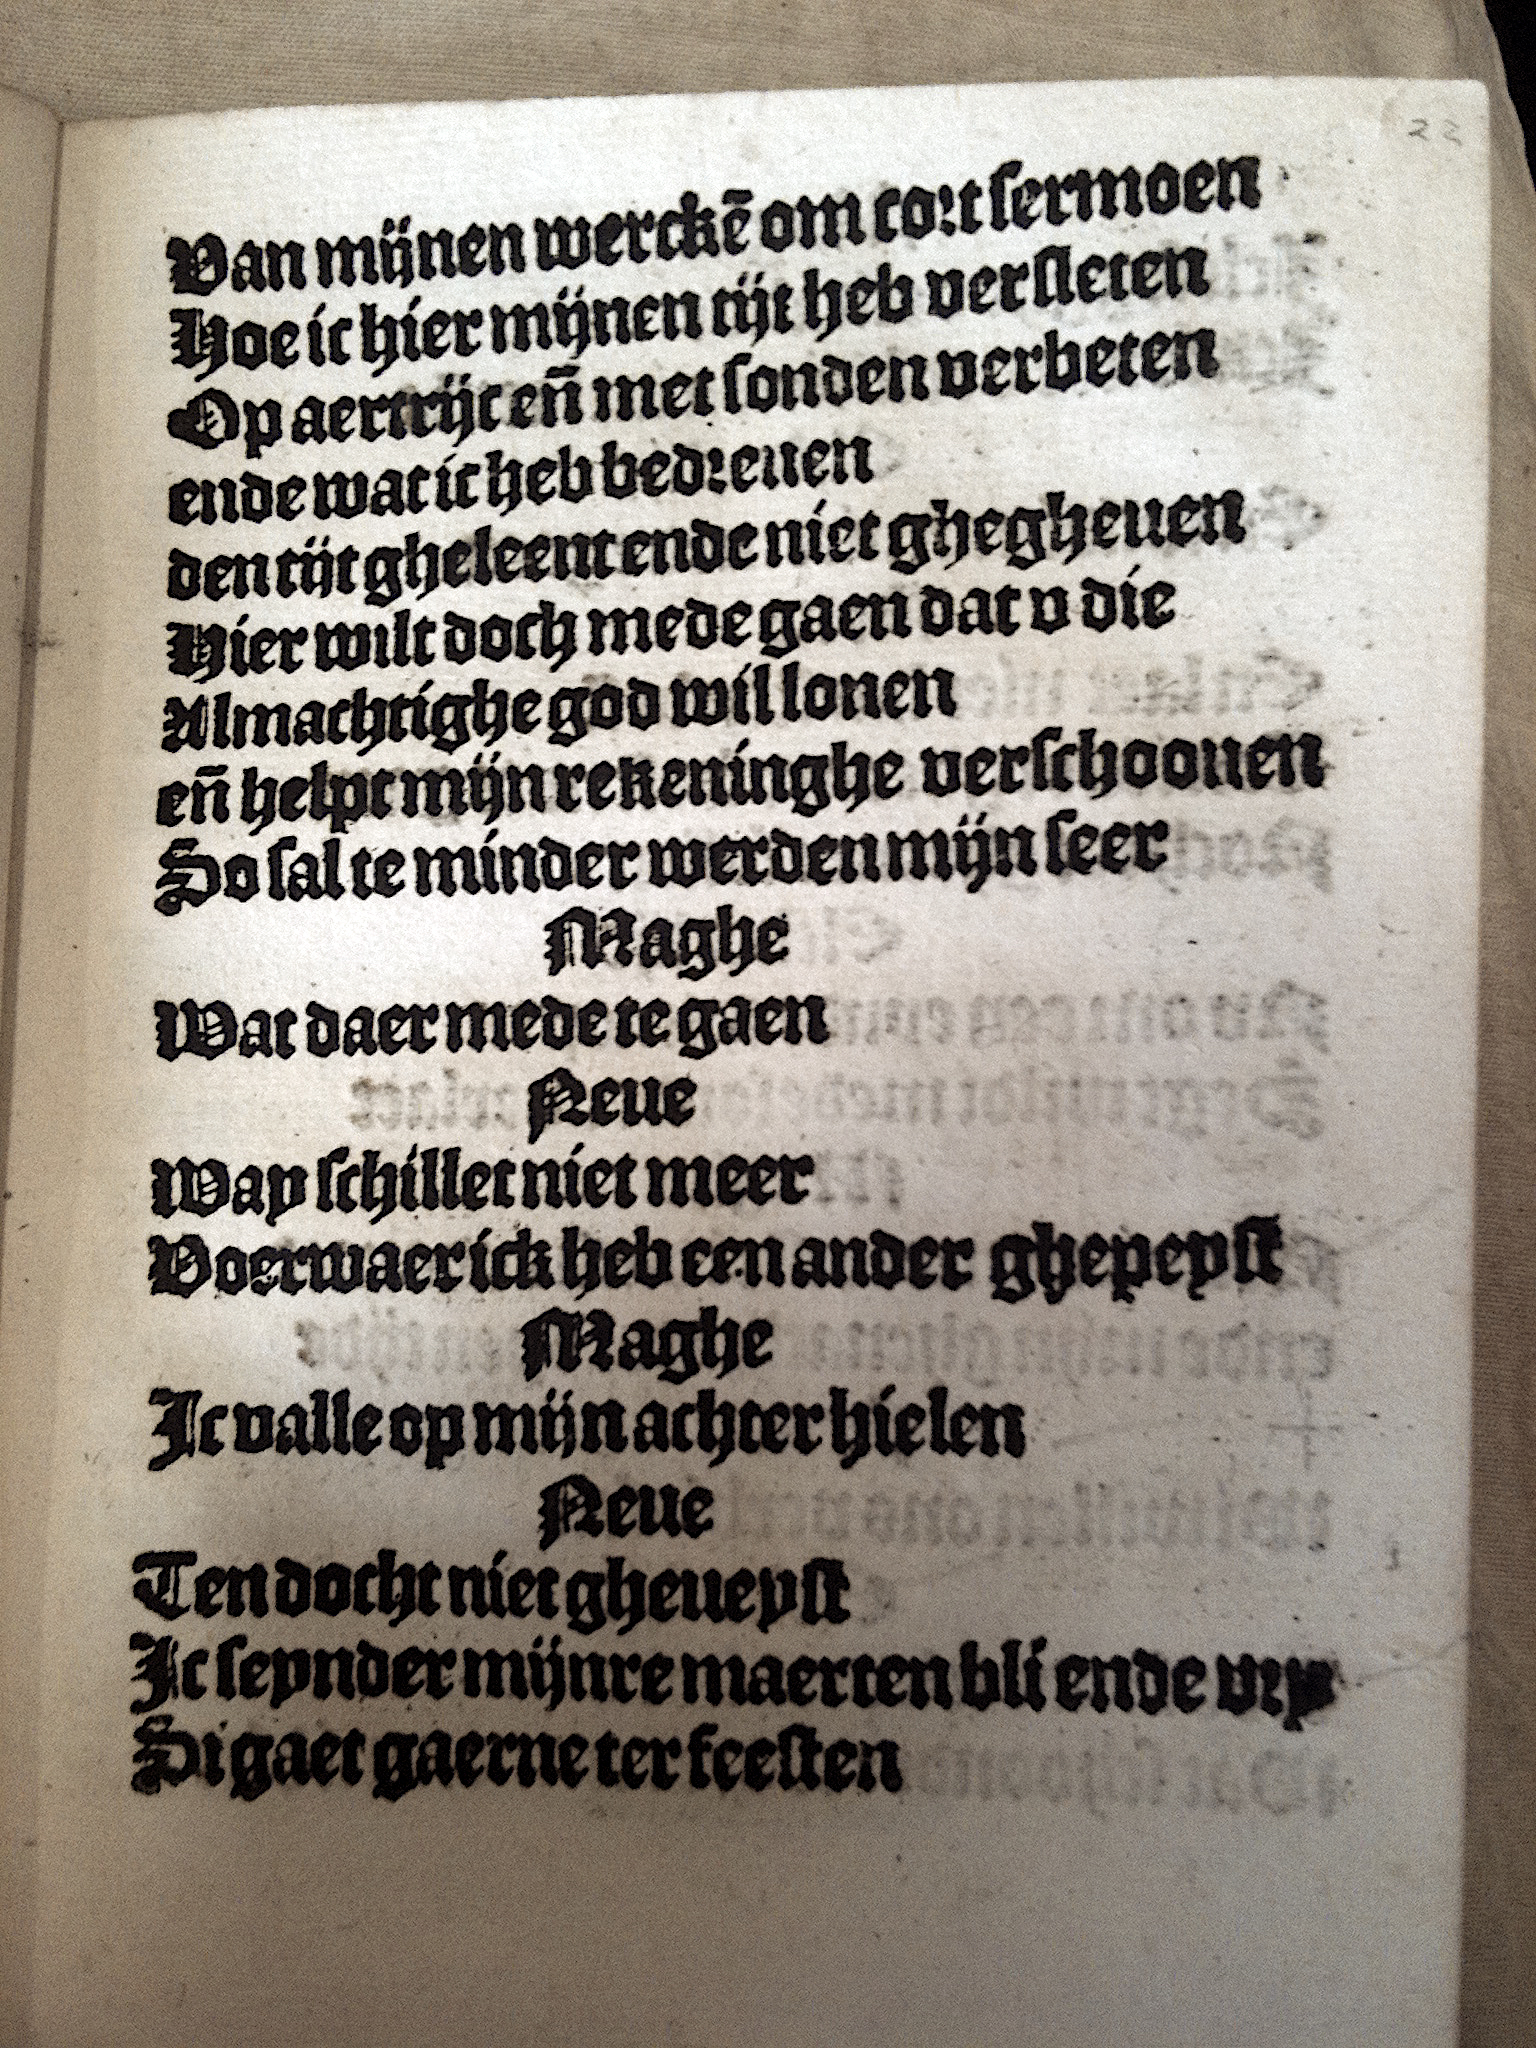 22
Van mijnen werckē om cort sermoen
Hoe ic hier mijnen tijt heb versleten
Op aertrijc eñ met sonden verbeten
ende wat ic heb bedreuen
den tijt gheleent ende niet ghegheuen
Hier wilt doch mede gaen dat v die
Almachtighe god wil lonen
eñ helpt mijn rekeninghe verschoouen
So sal te minder werden mijn seer
Maghe
Wat daer mede te gaen
Neue
Way schillet niet meer
Voerwaer ick heb een ander ghepeyst
Maghe
Ic valle op mijn achter hielen
Neue
Ten docht niet gheueyst
Ic seynder mijnre maerten bli ende vry
Si gaet gaerne ter feesten